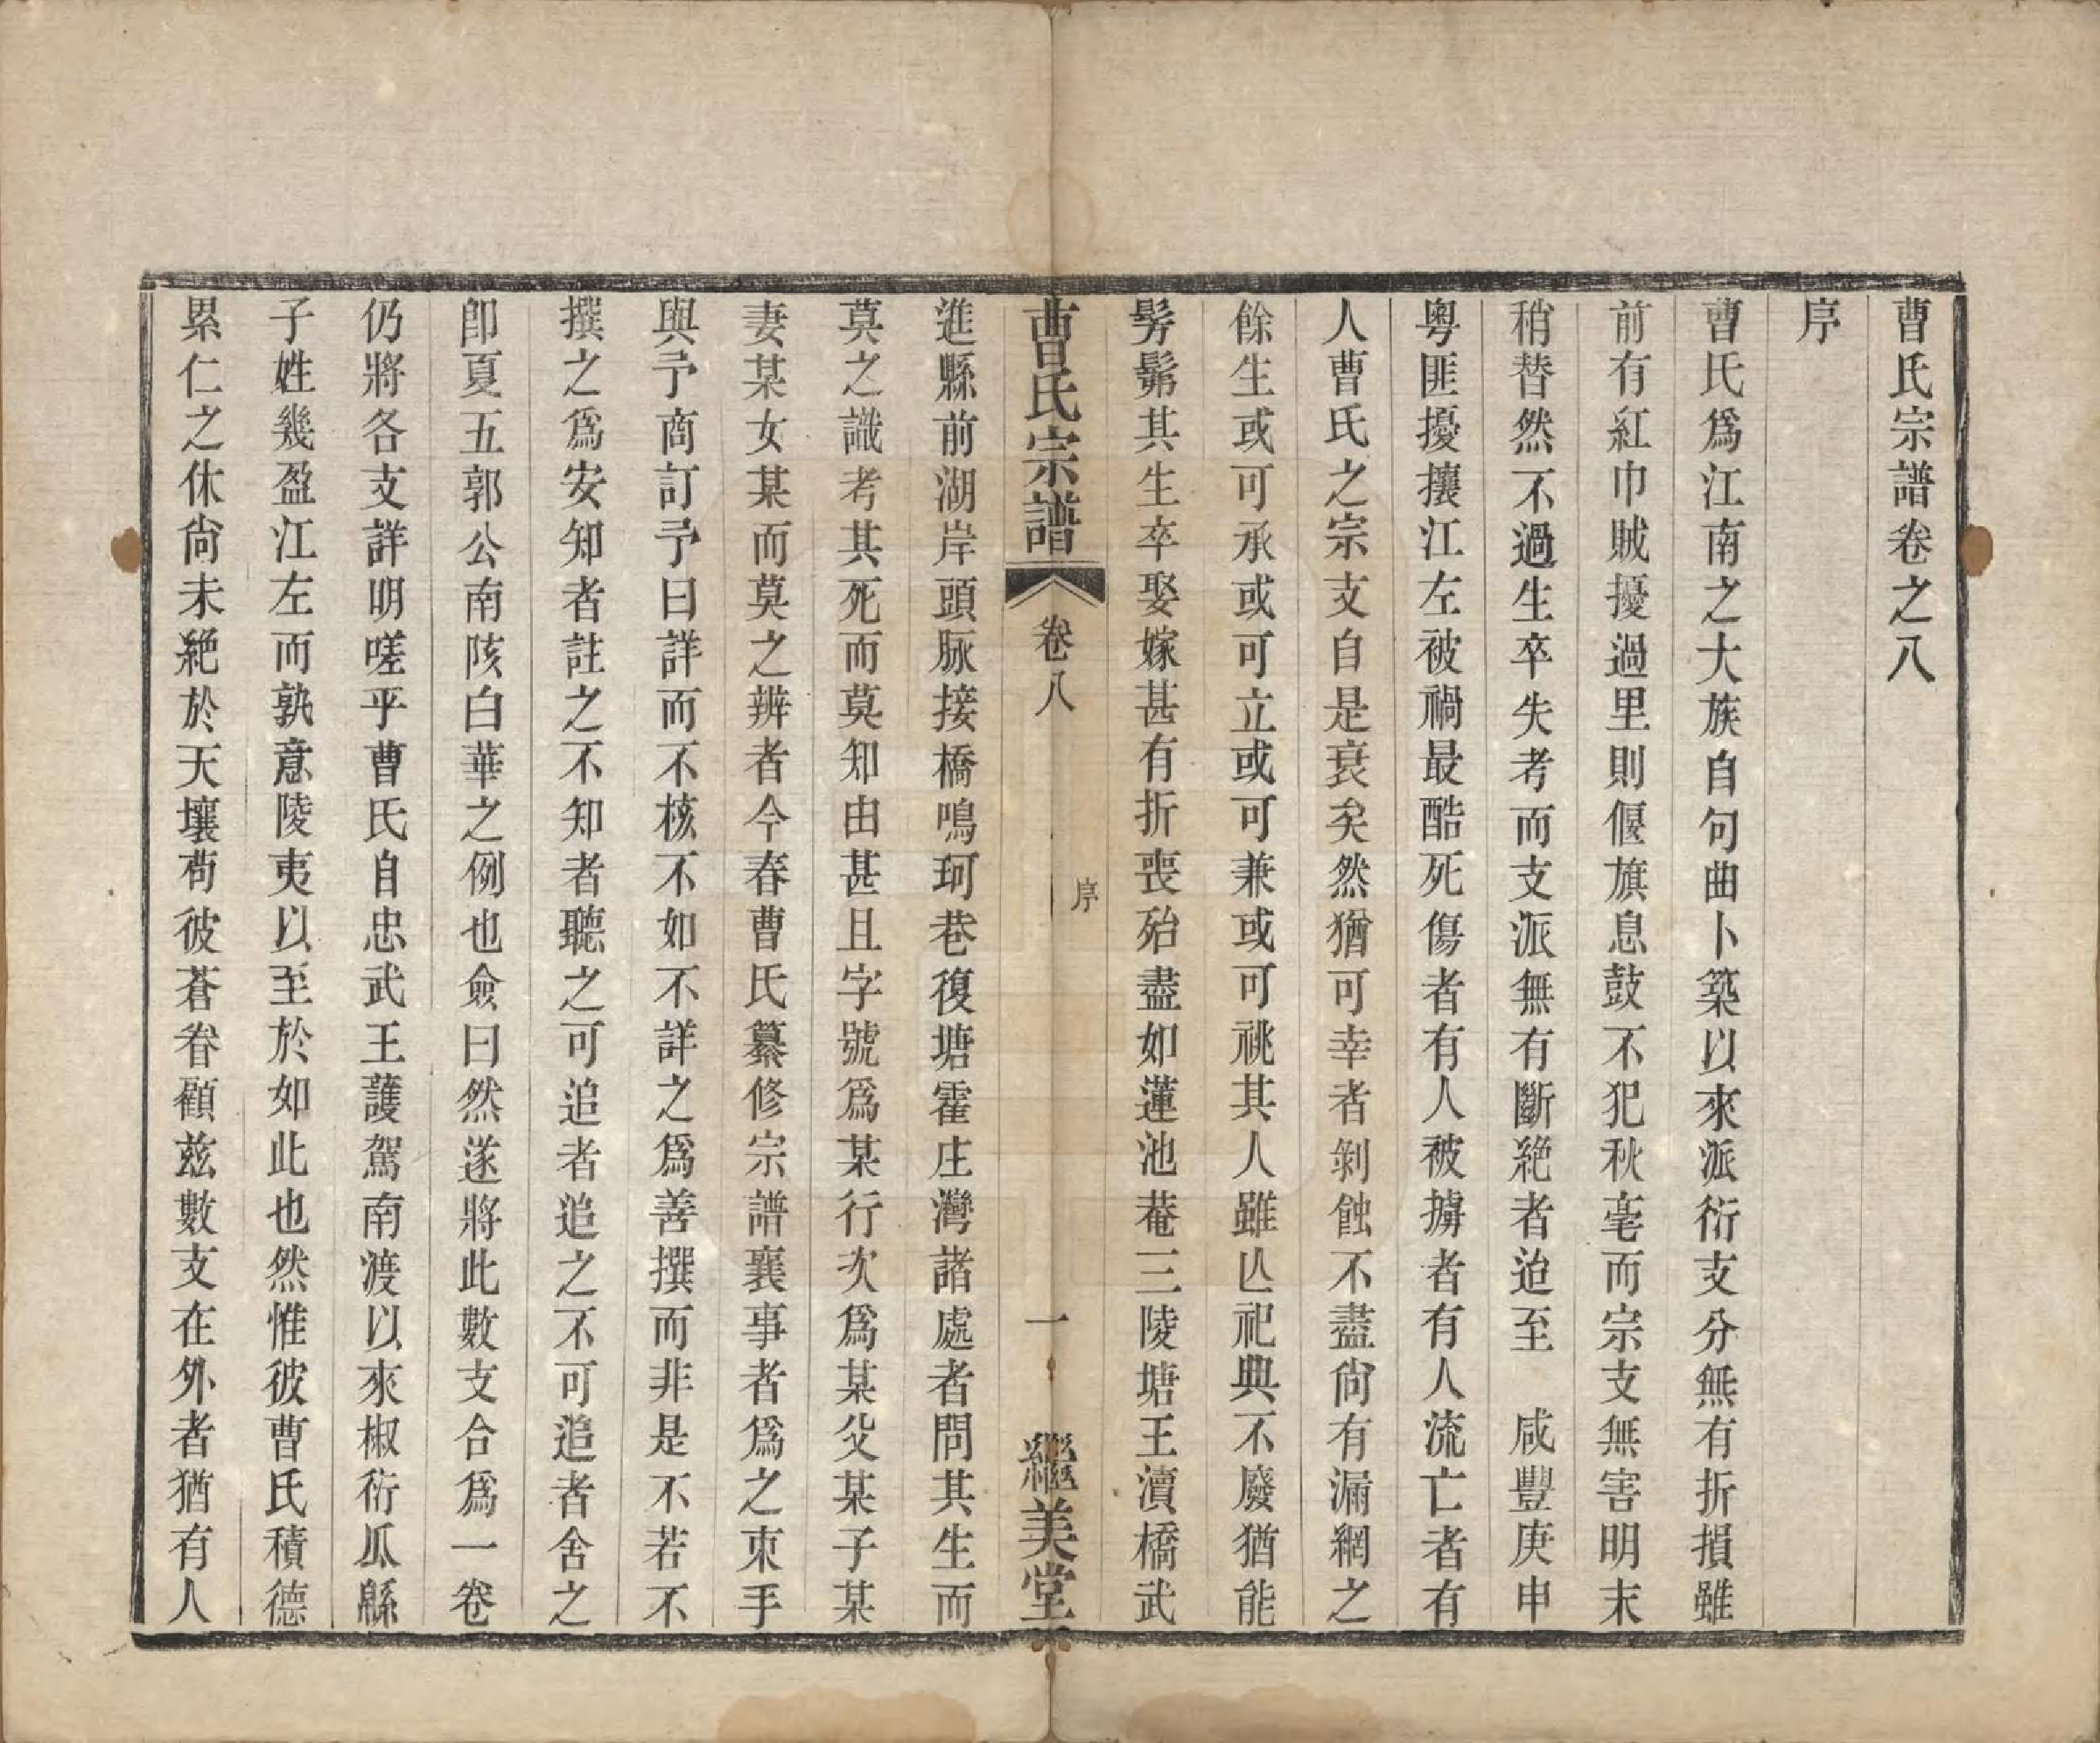 曹氏宗譜卷之八
序
曹氏爲江南之大族自句曲卜築以來派衍支分無有折損雖
前有紅巾賊擾過里則偃旗息鼓不犯秋毫而宗支無害明末
稍替然不過生卒失考而支派無有斷絶者迨至　咸豐庚申
粵匪擾攘江左被禍最酷死傷者有人被擄者有人流亡者有
人曹氏之宗支自是衰矣然猶可幸者剝蝕不盡尙有漏網之
餘生或可承或可立或可兼或可祧其人雖亾祀典不廢猶能
髣髴其生卒娶嫁甚有折喪殆盡如蓮池菴三陵塘王瀆橋武
曹氏宗譜　卷八　序　一　繼美堂
進縣前湖岸頭脉接橋鳴珂巷復塘霍庄灣諸處者問其生而
莫之識考其死而莫知由甚且字號爲某行次爲某父某子某
妻某女某而莫之辨者今春曹氏纂修宗譜襄事者爲之束手
與予商訂予曰詳而不核不如不詳之爲善撰而非是不若不
撰之爲安知者註之不知者聽之可追者追之不可追者舍之
卽夏五郭公南陔白華之例也僉曰然遂將此數支合爲一卷
仍將各支詳明嗟乎曹氏自忠武王護駕南渡以來椒衍瓜緜
子姓幾盈江左而孰意陵夷以至於如此也然惟彼曹氏積德
累仁之休尙未絶於天壤苟彼蒼眷顧玆數支在外者猶有人